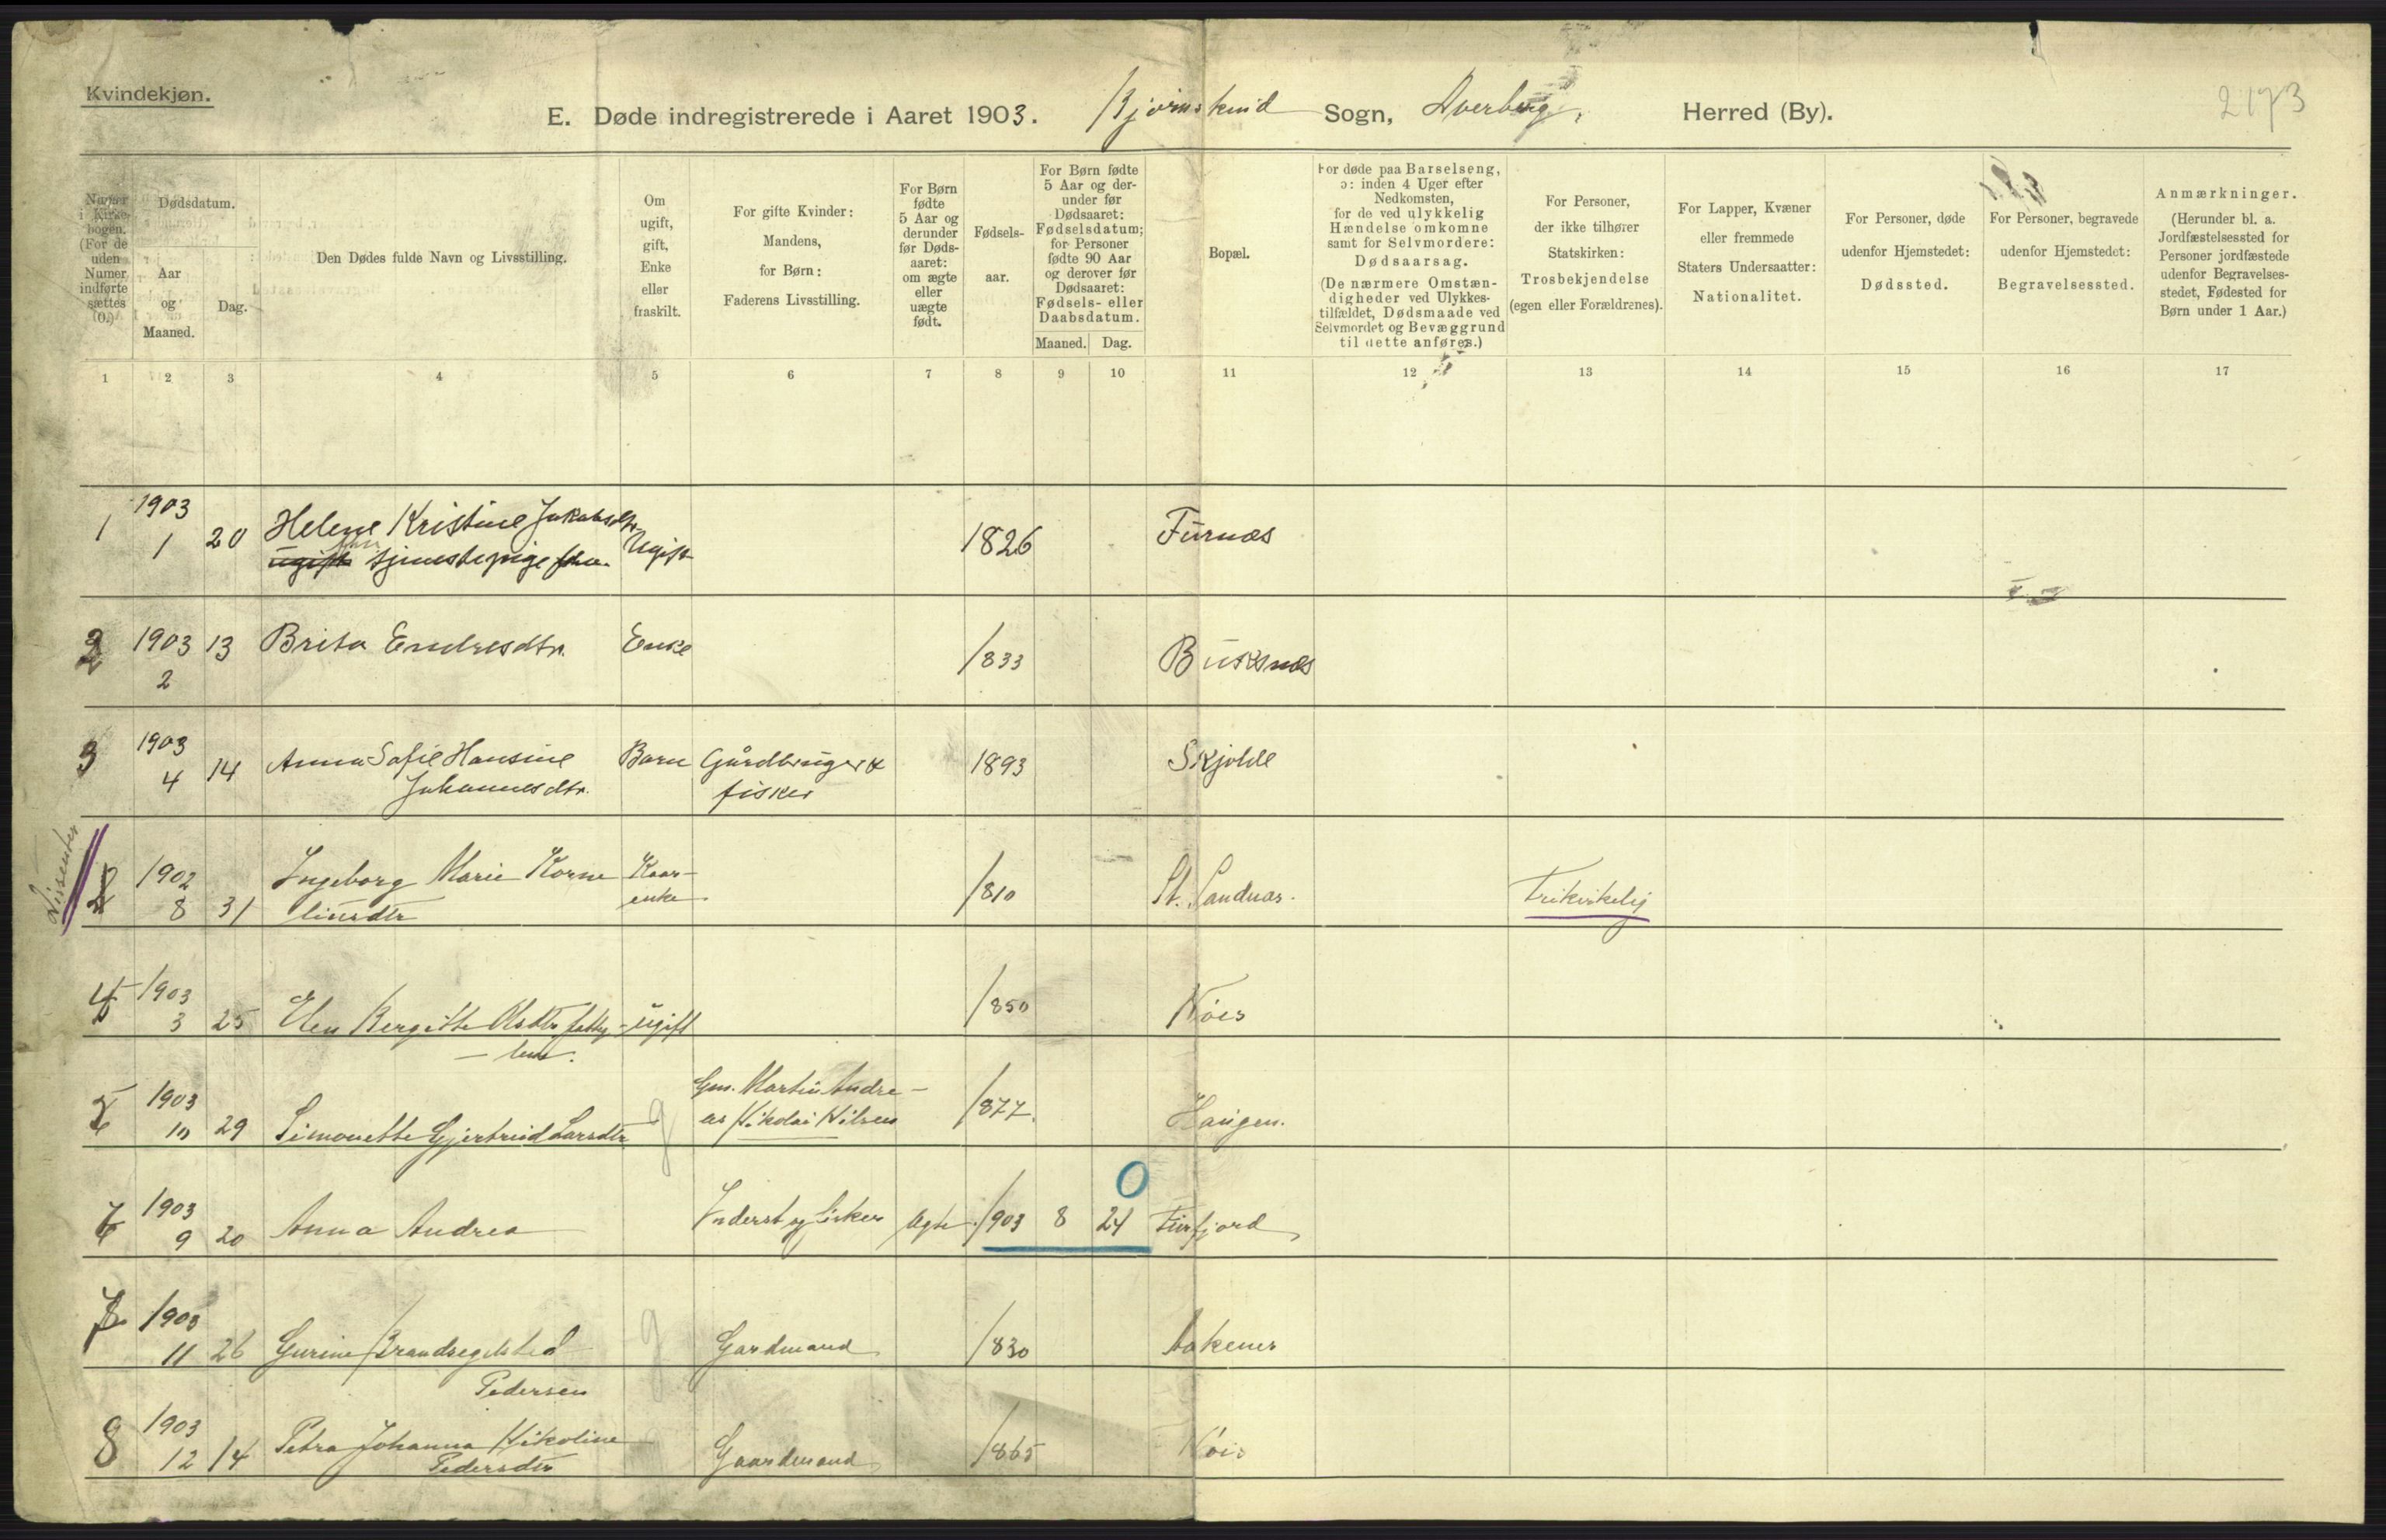 Kvindekjøn.
E. Døde indregistrerede i Aaret 1903. Bjørnskind Sogn, Dverberg, Herred (By).
2173
Numer i Kirkebogen. (For de uden Numer indførte sættes 0.)
Dødsdatum.
Aar og Maaned.
Dag.
Den Dødes fulde Navn og Livsstilling.
Om ugift, gift, Enke eller fraskilt.
For gifte Kvinder: Mandens, for Børn: Faderens Livsstilling.
For Børn fødte 5 Aar og derunder før Dødsaaret: om ægte eller uægte født.
Fødselsaar.
For Børn fødte 5 Aar og derunder før Dødsaaret: Fødselsdatum; for Personer fødte 90 Aar og derover før Dødsaaret: Fødsels- eller Daabsdatum.
Maaned. Dag.
Bopæl.
For døde paa Barselseng, ɔ: inden 4 Uger efter Nedkomsten, for de ved ulykkelig Hændelse omkomne samt for Selvmordere: Dødsaarsag.
(De nærmere Omstændigheder ved Ulykkestilfældet, Dødsmaade ved Selvmordet og Bevæggrund til dette anføres.)
For Personer, der ikke tilhører Statskirken: Trosbekjendelse (egen eller Forældrenes).
For Lapper, Kvæner eller fremmede Staters Undersaatter: Nationalitet.
For Personer, døde udenfor Hjemstedet: Dødssted.
For Personer, begravede udenfor Hjemstedet: Begravelsessted.
Anmærkninger.
(Herunder bl. a. Jordfæstelsessted for Personer jordfæstede udenfor Begravelsesstedet, Fødested for Børn under 1 Aar.)
1 2 3 4 5 6 7 8 9 10 11 12 13 14 15 16 17
1 1903 1 20 Helene Kristine Jakobsdtr. Ugift 1826 Furnæs
ugift tjenestepige
2 1903 2 13 Brita Endresdtr. Enke 1833 Buksnæs
3 1903 4 14 Anna Sofie Hansine Barn Gårdbruger & 1893 Skjolde
Johannesdtr. fisker
Dissenter
1902 8 31 Ingeborg Marie Korne Kaar- 1810 St. Sandnæs. Frikirkelig
liusdtr enke
4 1903 3 25 Elen Bergitte Olsdtr fattig- ugift 1850 Nöis
lem.
5 1903 10 29 Simonette Gjertrud Larsdtr g Gm. Martin Andre- 1877. Haugen.
as Nikolai Nilsen
6 1903 9 20 Anna Andrea Inderst og fisker ægte 1903 8 24 Fiurfjord
0
7 1903 11 26 Gurine Brandsegelsted g Gardmand 1830 Aakenes
Pedersen
8 1903 12 14 Petra Johanna Nikoline g Gaardmand 1865 Nöis
Pedersdtr